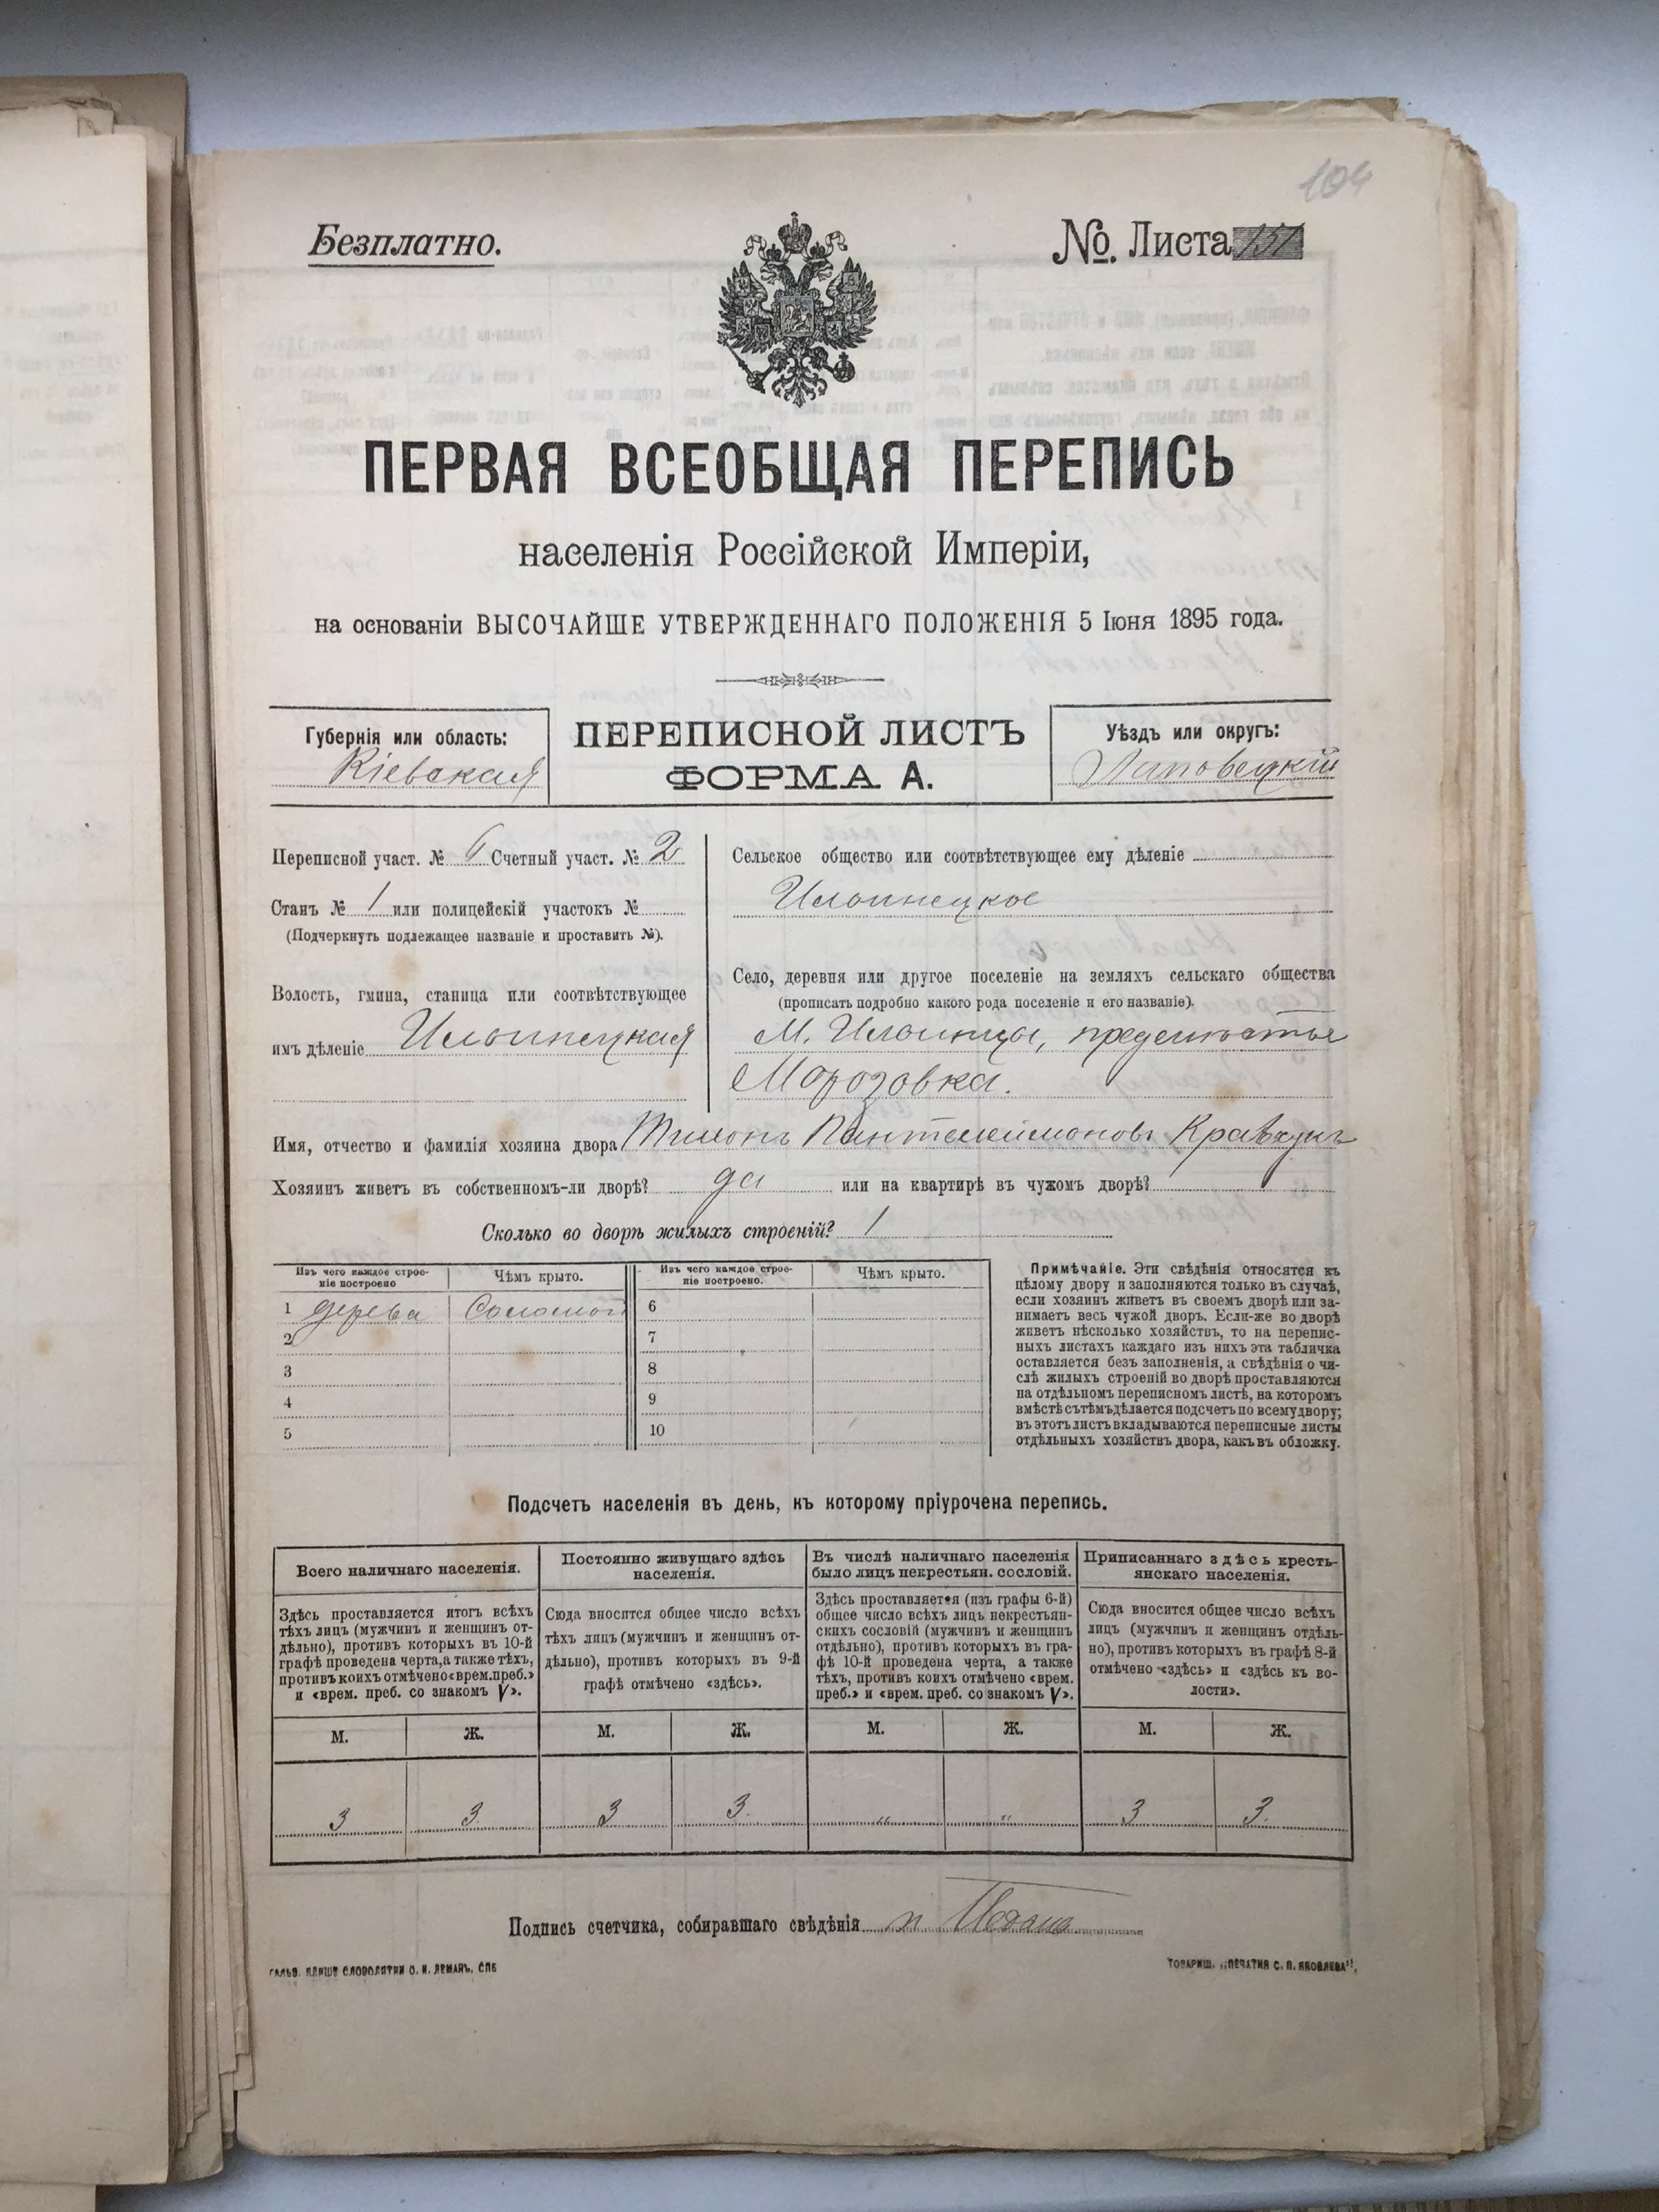 104
Безплатно.
№. Листа 151
ПЕРВАЯ ВСЕОБЩАЯ ПЕРЕПИСЬ
населенія Россійской Имперіи,
на основаніи ВЫСОЧАЙШЕ УТВЕРЖДЕННАГО ПОЛОЖЕНІЯ 5 Іюня 1895 года.
Губернія или область:
Кіевская
ПЕРЕПИСНОЙ ЛИСТЪ
ФОРМА А.
Уѣздъ или округъ:
Липовецкій
Переписной участ. № 6 Счетный участ. № 2
Станъ № 1 или полицейскій участокъ №
(Подчеркнуть подлежащее названіе и проставить №).
Волость, гмина, станица или соотвѣтствующее
имъ дѣленіе Ильинецкая
Сельское общество или соотвѣтствующее ему дѣленіе
Ильинецкое
Село, деревня или другое поселеніе на земляхъ сельскаго общества
(прописать подробно какого рода поселеніе и его названіе).
М. Ильинцы, предмѣстье
Морозовка.
Имя, отчество и фамилія хозяина двора Тимонъ Пантелеймоновъ Кравчукъ
Хозяинъ живетъ въ собственномъ-ли дворѣ? да или на квартирѣ въ чужомъ дворѣ?
Сколько во дворѣ жилыхъ строеній? 1
Изъ чего каждое строе-
ніе построено
Чѣмъ крыто.
Изъ чего каждое строе-
ніе построено.
Чѣмъ крыто.
1 дерева Соломой 6
2 7
3 8
4 9
5 10
Примѣчаніе. Эти свѣдѣнія относятся къ
цѣлому двору и заполняются только въ случаѣ,
если хозяинъ живетъ въ своемъ дворѣ или за-
нимаетъ весь чужой дворъ. Если-же во дворѣ
живетъ нѣсколько хозяйствъ, то на перепис-
ныхъ листахъ каждаго изъ нихъ эта табличка
оставляется безъ заполненія, а свѣдѣнія о чи-
слѣ жилыхъ строеній во дворѣ проставляются
на отдѣльномъ переписномъ листѣ, на которомъ
вмѣстѣ съ тѣмъ дѣлается подсчетъ по всему двору;
въ этотъ листъ вкладываются переписные листы
отдѣльныхъ хозяйствъ двора, какъ въ обложку.
Подсчетъ населенія въ день, къ которому пріурочена перепись.
Всего наличнаго населенія.
Здѣсь проставляется итогъ всѣхъ
тѣхъ лицъ (мужчинъ и женщинъ от-
дѣльно), противъ которыхъ въ 10-й
графѣ проведена черта, а также тѣхъ,
противъ коихъ отмѣчено «врем. преб.»
и «врем. преб. со знакомъ V».
М. Ж.
3 3.
Постоянно живущаго здѣсь
населенія.
Сюда вносится общее число всѣхъ
тѣхъ лицъ (мужчинъ и женщинъ от-
дѣльно), противъ которыхъ въ 9-й
графѣ отмѣчено «здѣсь».
М. Ж.
3 3.
Въ числѣ наличнаго населенія
было лицъ некрестьян. сословій.
Здѣсь проставляется (изъ графы 6-й)
общее число всѣхъ лицъ некрестьян-
скихъ сословій (мужчинъ и женщинъ
отдѣльно), противъ которыхъ въ гра-
фѣ 10-й проведена черта, а также
тѣхъ, противъ коихъ отмѣчено «врем.
преб.» и «врем. преб. со знакомъ V».
М. Ж.
„ „
Приписаннаго здѣсь кресть-
янскаго населенія.
Сюда вносится общее число всѣхъ
лицъ (мужчинъ и женщинъ отдѣль-
но), противъ которыхъ въ графѣ 8-й
отмѣчено «здѣсь» и «здѣсь къ во-
лости».
М. Ж.
3 3.
Подпись счетчика, собиравшаго свѣдѣнія
ГАЛЬВ. КЛИШЕ СЛОВОЛИТНИ О. И. ЛЕМАНЪ, СПБ
ТОВАРИЩ. „ПЕЧАТНЯ С. П. ЯКОВЛЕВА“.